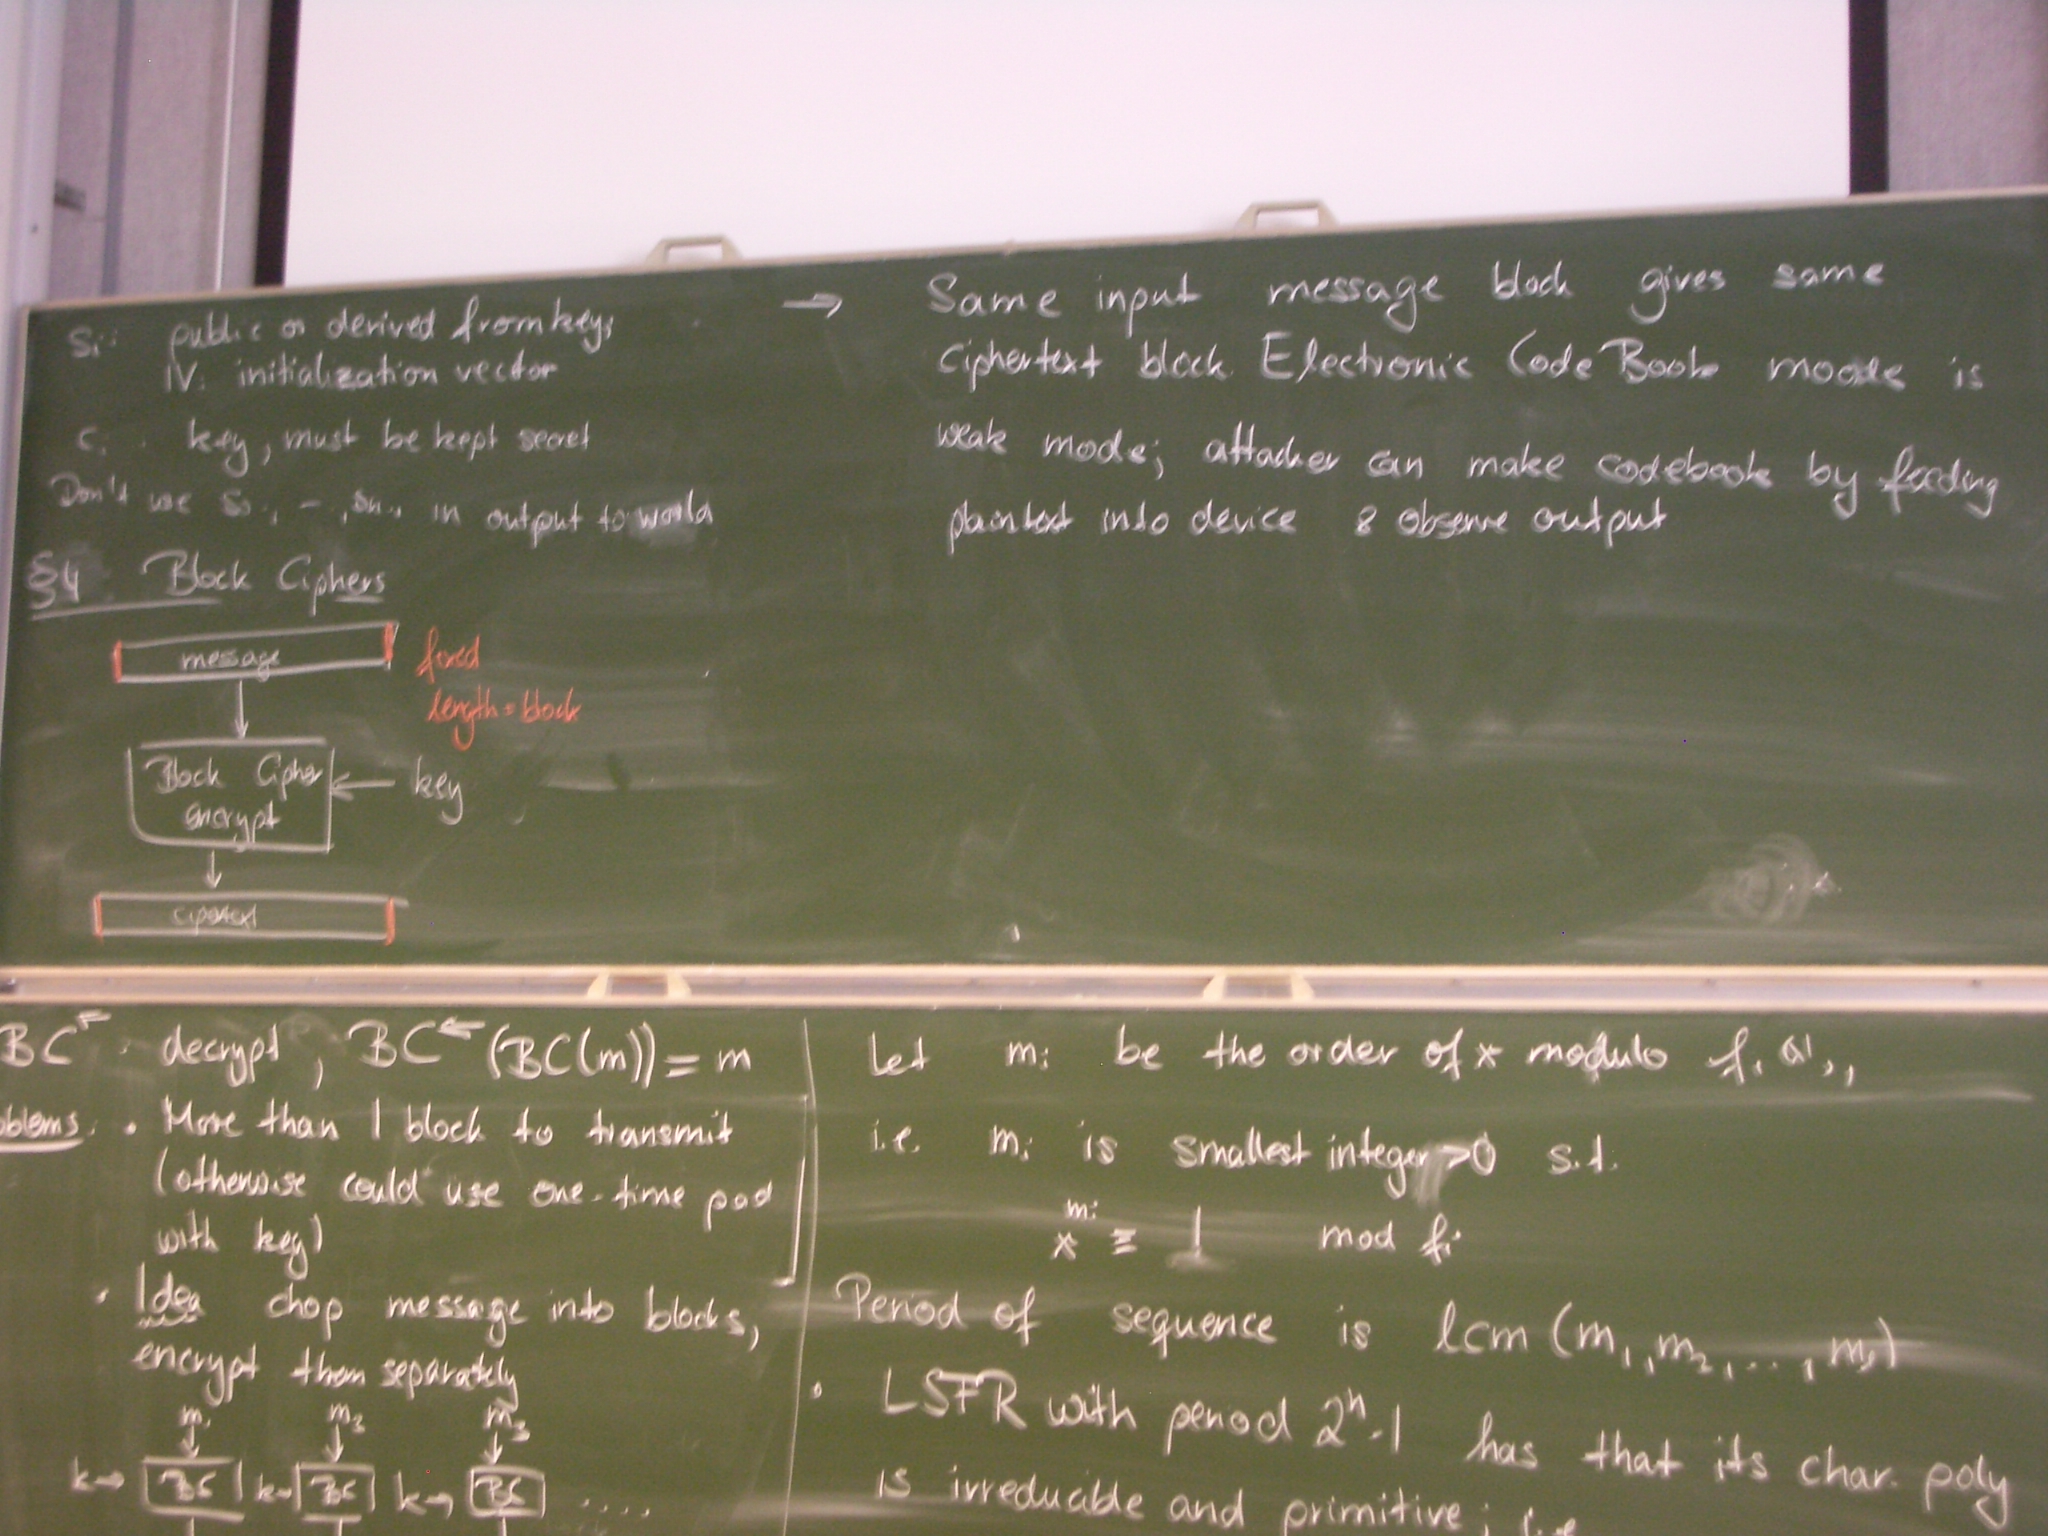 Si: public or derived from key;
IV: initialization vector
Ci: key, must be kept secret
Don't use S0, -, Sn-1 in output to world
§4 Block Ciphers
message
fixed
length = block
Block Cipher
encrypt
key
→ Same input message block gives same
Ciphertext block. Electronic Code Book mode is
weak mode; attacker can make codebook by feeding
plaintext into device & observe output
BC← : decrypt, BC← (BC(m)) = m
oblems: • More than 1 block to transmit
(otherwise could use one-time pad
with key)
• Idea chop message into blocks,
encrypt them separately
m1 m2 m3
k→ BC k→ BC k→ BC ....
Let mi be the order of x modulo fi
i.e. mi is smallest integer >0 s.t.
x^mi ≡ 1 mod fi
Period of sequence is lcm (m1, m2, ..., ms)
• LSFR with period 2^n-1 has that its char. poly
is irreducible and primitive; i.e